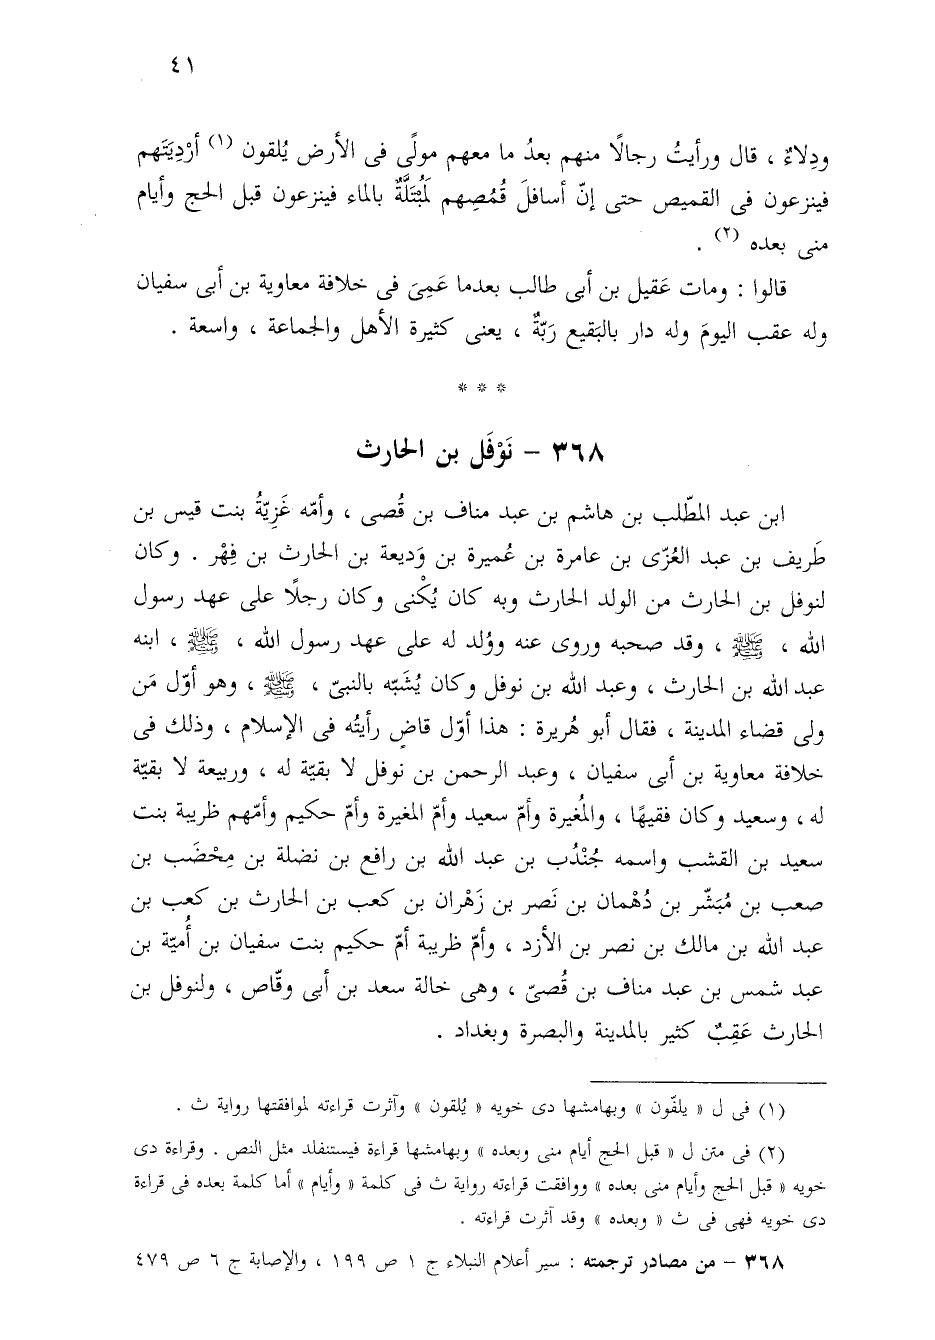 ٤١
ودِلاءٌ ، قال ورأيتُ رجالًا منهم بعدُ ما معهم مولًى فى الأرض يُلقون (١) أرْدِيَتَهم
فينزعون فى القميص حتى إنّ أسافلَ قُمُصِهم لَمُبْتَلَّةٌ بالماء فينزعون قبل الحج وأيام
منى بعده (٢) .
قالوا : ومات عَقيل بن أبى طالب بعدما عَمِىَ فى خلافة معاوية بن أبى سفيان
وله عقب اليومَ وله دار بالبَقيع رَبّةٌ ، يعنى كثيرة الأهل والجماعة ، واسعة .
* * *
٣٦٨ – نَوْفَل بن الحارث
ابن عبد المطّلب بن هاشم بن عبد مناف بن قُصى ، وأمّه غَزِيّةُ بنت قيس بن
طَريف بن عبد العُزّى بن عامرة بن عُميرة بن وَديعة بن الحارث بن فِهْر . وكان
لنوفل بن الحارث من الولد الحارث وبه كان يُكْنى وكان رجلًا على عهد رسول
الله ، ﷺ ، وقد صحبه وروى عنه ووُلد له على عهد رسول الله ، ﷺ ، ابنه
عبد الله بن الحارث ، وعبد الله بن نوفل وكان يُشَبّه بالنبىّ ، ﷺ ، وهو أوّل مَن
ولى قضاء المدينة ، فقال أبو هُريرة : هذا أوّل قاضٍ رأيتُه فى الإسلام ، وذلك فى
خلافة معاوية بن أبى سفيان ، وعبد الرحمن بن نوفل لا بقيّة له ، وربيعة لا بقيّة
له ، وسعيد وكان فقيهًا ، والمُغيرة وأمّ سعيد وأمّ المغيرة وأمّ حكيم وأمّهم ظريبة بنت
سعيد بن القشب واسمه جُنْدُب بن عبد الله بن رافع بن نضلة بن مِحْضَب بن
صعب بن مُبَشّر بن دُهْمان بن نَصر بن زَهْران بن كعب بن الحارث بن كعب بن
عبد الله بن مالك بن نصر بن الأزد ، وأمّ ظريبة أمّ حكيم بنت سفيان بن أُميّة بن
عبد شمس بن عبد مناف بن قُصىّ ، وهى خالة سعد بن أبى وقّاص ، ولنوفل بن
الحارث عَقِبٌ كثير بالمدينة والبصرة وبغداد .
(١) فى ل « يلفّون » وبهامشها دى خويه « يُلقون » وآثرت قراءته لموافقتها رواية ث .
(٢) فى متن ل « قبل الحج أيام منى وبعده » وبهامشها قراءة فيستنفلد مثل النص . وقراءة دى
خويه « قبل الحج وأيام منى بعده » ووافقت قراءته رواية ث فى كلمة « وأيام » أما كلمة بعده فى قراءة
دى خويه فهى فى ث « وبعده » وقد آثرت قراءته .
٣٦٨ – من مصادر ترجمته : سير أعلام النبلاء ج ١ ص ١٩٩ ، والإصابة ج ٦ ص ٤٧٩